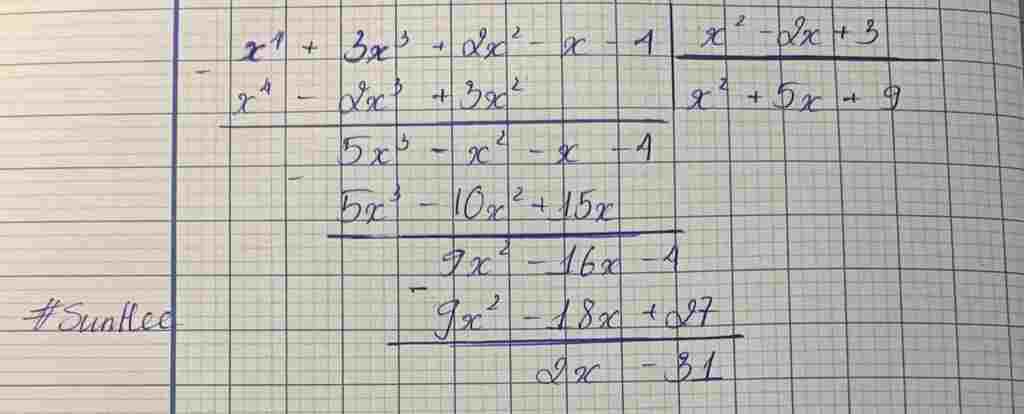 x⁴ + 3x³ + 2x² - x - 4 | x² - 2x + 3
- x⁴ - 2x³ + 3x² | x² + 5x + 9
5x³ - x² - x - 4
- 5x³ - 10x² + 15x
9x² - 16x - 4
- 9x² - 18x + 27
2x - 31
#SunHee